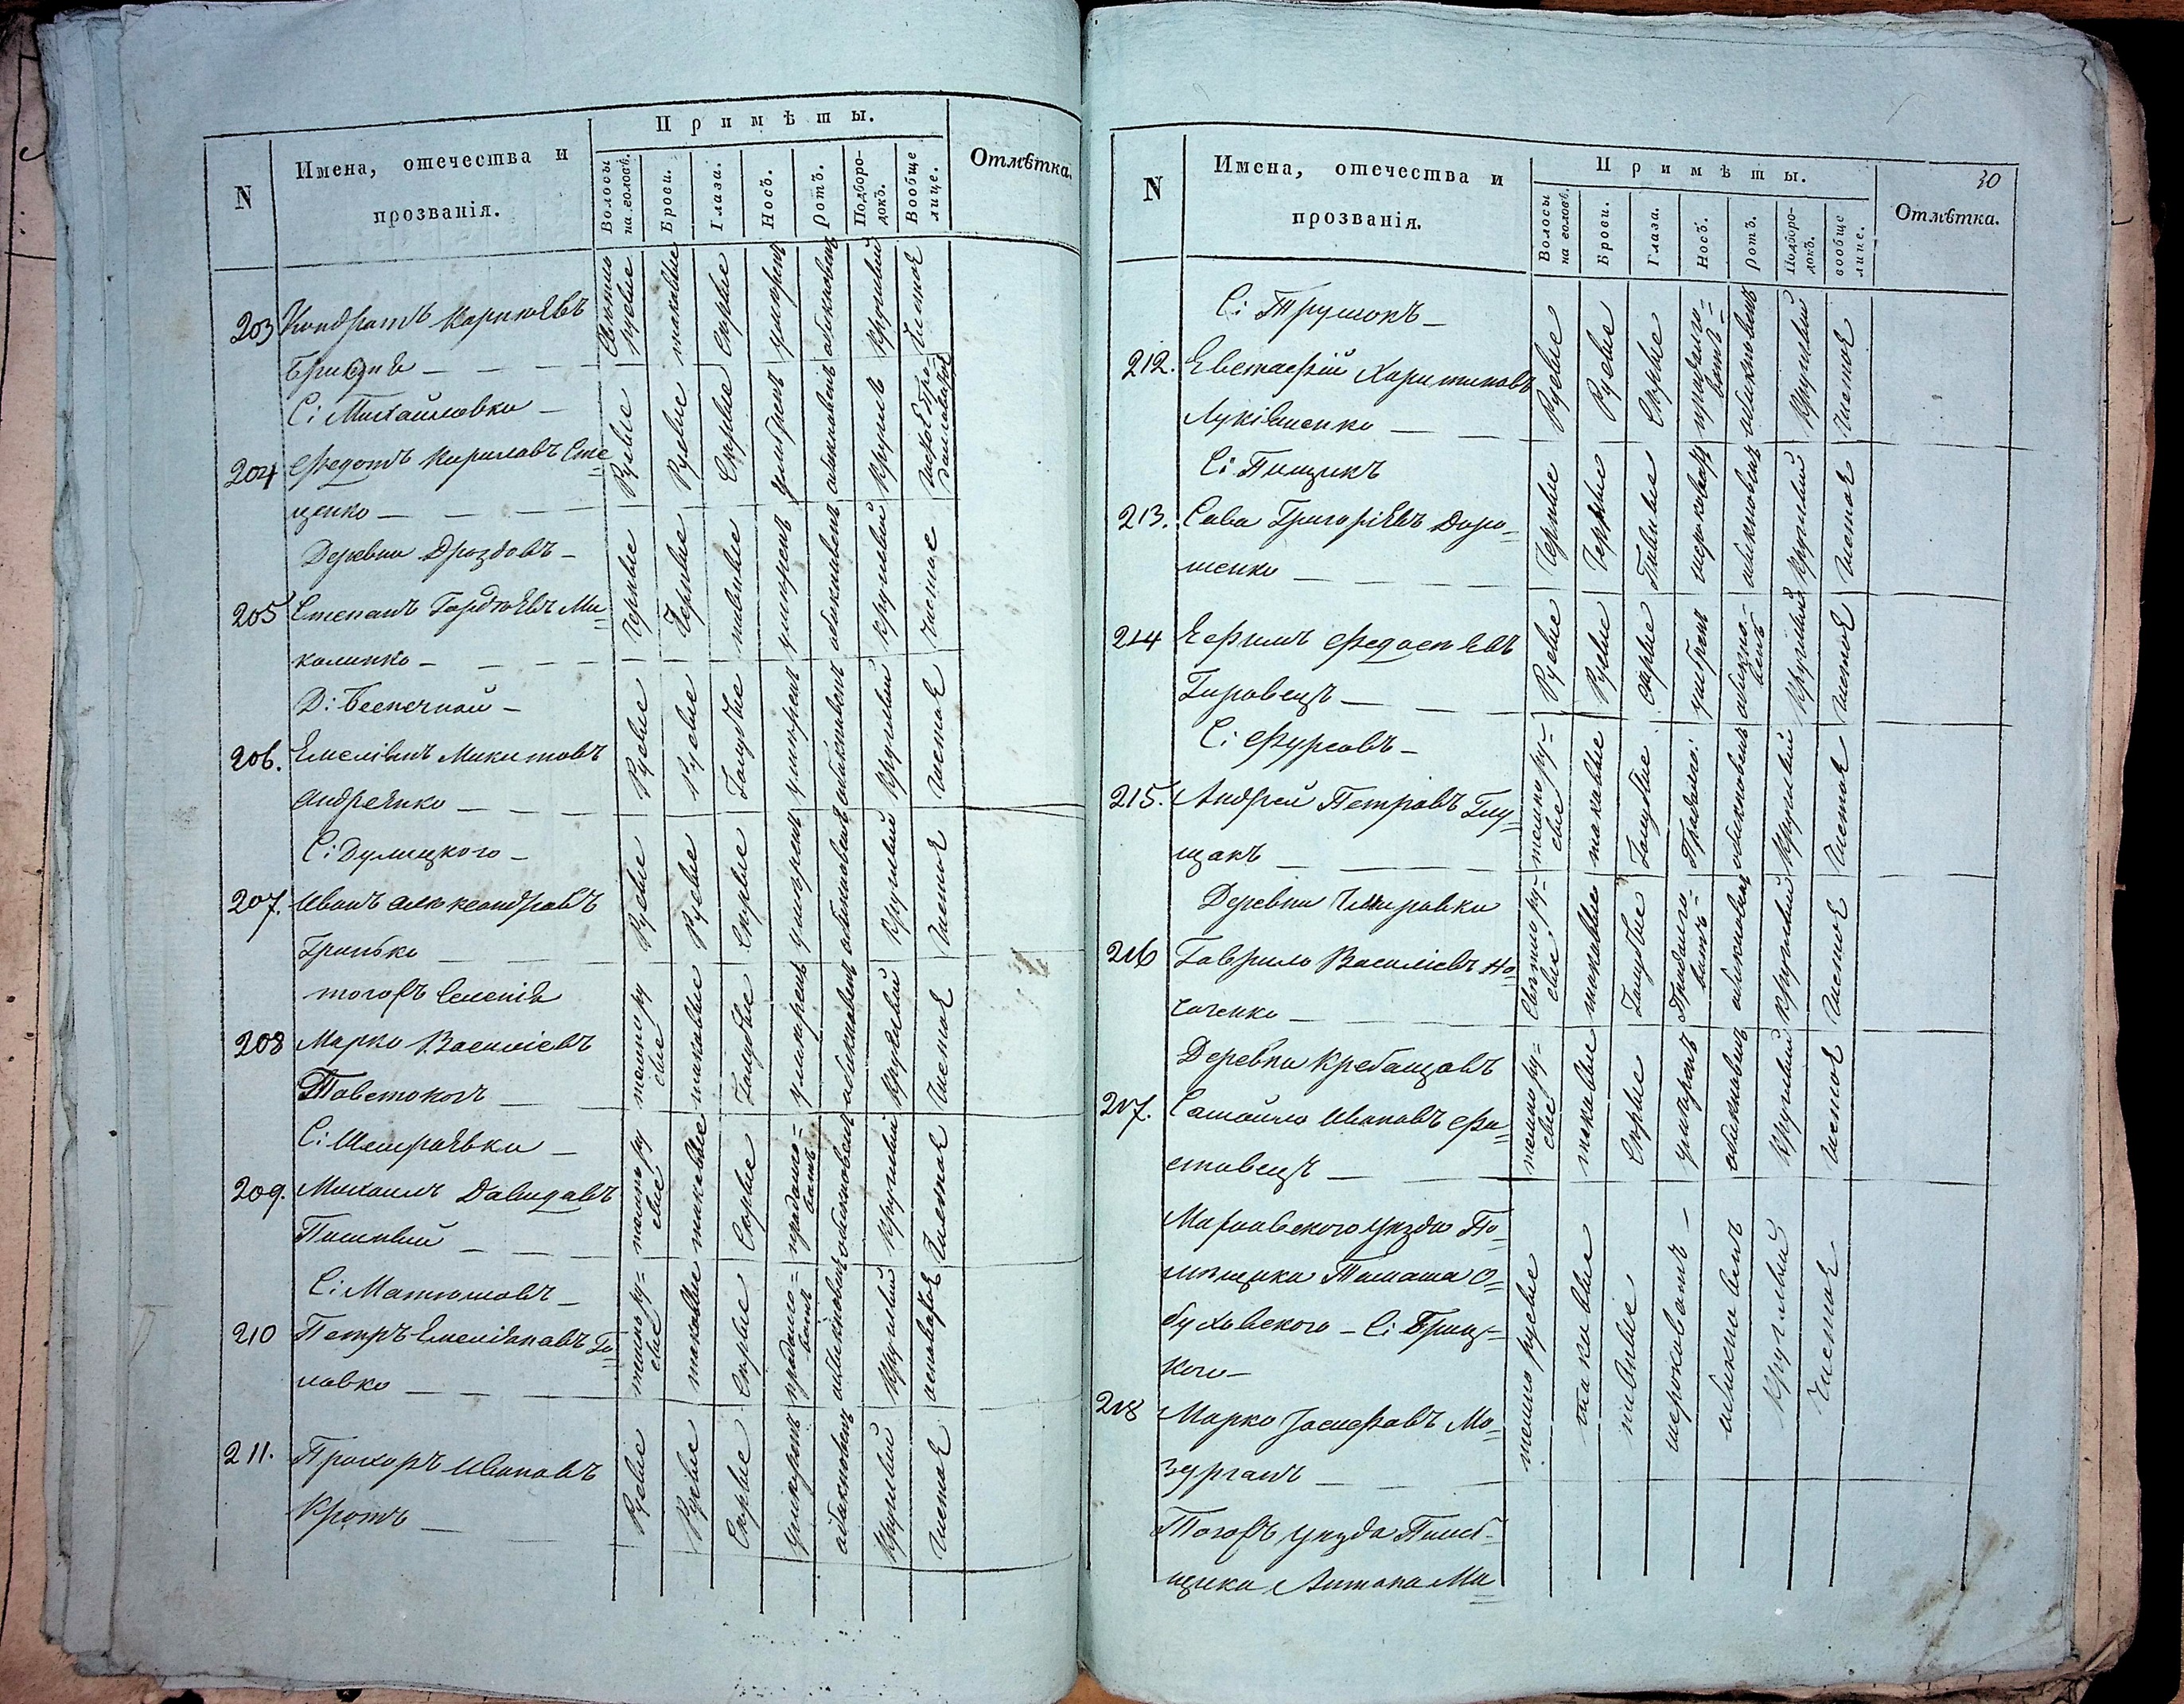 Примѣты.
N
Имена, отечества и
прозванія.
Волосы
на головѣ.
Брови.
Глаза.
Носъ.
Ротъ.
Подборо-
докъ.
Вообще
лице.
Отмѣтка.
203 Кондратъ Карпювъ
С: Михайловки
светло
русые
таковые
серые
умѣренъ
обыкновенъ
круглый
чистое
204 Федотъ Кириловъ Сте=
ценко
Русые
Русые
Серые
умѣренъ
обыкновенъ
кругла
Деревни Дроздовъ
205 Степанъ Гордѣевъ Ми=
калинко
Черные
Черные
пивные
умѣренъ
обыкновенъ
круглый
чистое
Д: Безпечной
206. Емеліянъ Микитовъ
Андреянко
Русые
Русые
Голубые
умѣренъ
обыкновенъ
круглый
чистое
С: Дулицкого
207. Иванъ Александровъ
Гринько
Русые
Русые
Серые
умѣренъ
обыкновенъ
круглый
чистое
тогожъ Селенія
208 Марко Василіевъ
темно ру
сые
таковые
Голубые
умѣренъ
обыкновенъ
круглый
чистое
С: Шамраевки
209. Михаилъ Давидовъ
темно ру
сые
таковые
Серые
продолго=
ватъ
обыкновенъ
круглый
чистое
С: Матюшовъ
210 Петръ Емеліяновъ Го=
ловко
темно ру=
сые
таковые
Серые
продолго=
ватъ
обыкновенъ
круглый
211. Прохоръ Ивановъ
Кротъ
Русые
Русые
Серые
умѣренъ
обыкновенъ
круглый
чистое
30
N
Имена, отечества и
прозванія.
Примѣты.
Волосы
на головѣ.
Брови.
Глаза.
Носъ.
Ротъ.
Подборо-
докъ.
вообще
лице.
Отмѣтка.
С: Трушокъ
212. Евстафій Харитиновъ
Лукіяненко
Русые
Русые
Серые
продолго=
ватъ
обыкновенъ
круглый
чистое
С: Пищикъ
213. Сава Григоріевъ Доро=
шенко
Черные
Черные
Пивные
широковатъ
обыкновенъ
круглый
чистое
214 Ефимъ Федосѣевъ
Гировецъ
Русые
Русые
серые
умѣренъ
обыкно=
венъ
круглый
чистое
С: Фурсовъ
215. Андрей Петровъ Глу=
щакъ
темно ру=
сые
таковые
Голубые
Продолго:
обыкновенъ
круглый
чистое
Деревни Чмировки
216 Гаврило Василіевъ
светло ру=
сые
таковые
Голубые
Продолго=
ватъ
обыкновенъ
круглый
чистое
Деревни Кребащовъ
217. Самойло Ивановъ Фа=
стовецъ
темно ру=
сые
таковые
Серые
умѣренъ
обыкновенъ
круглый
чистое
Махновского уѣзда По=
мѣщика Томаша О=
буховского С: Бриц=
кого
218 Марко Іосифовъ Мо=
зурганъ
темно русые
таковые
пивные
широковатъ
обыкновенъ
круглый
чистое
Тогожъ уѣзда Помѣ=
щика Антона Ма=